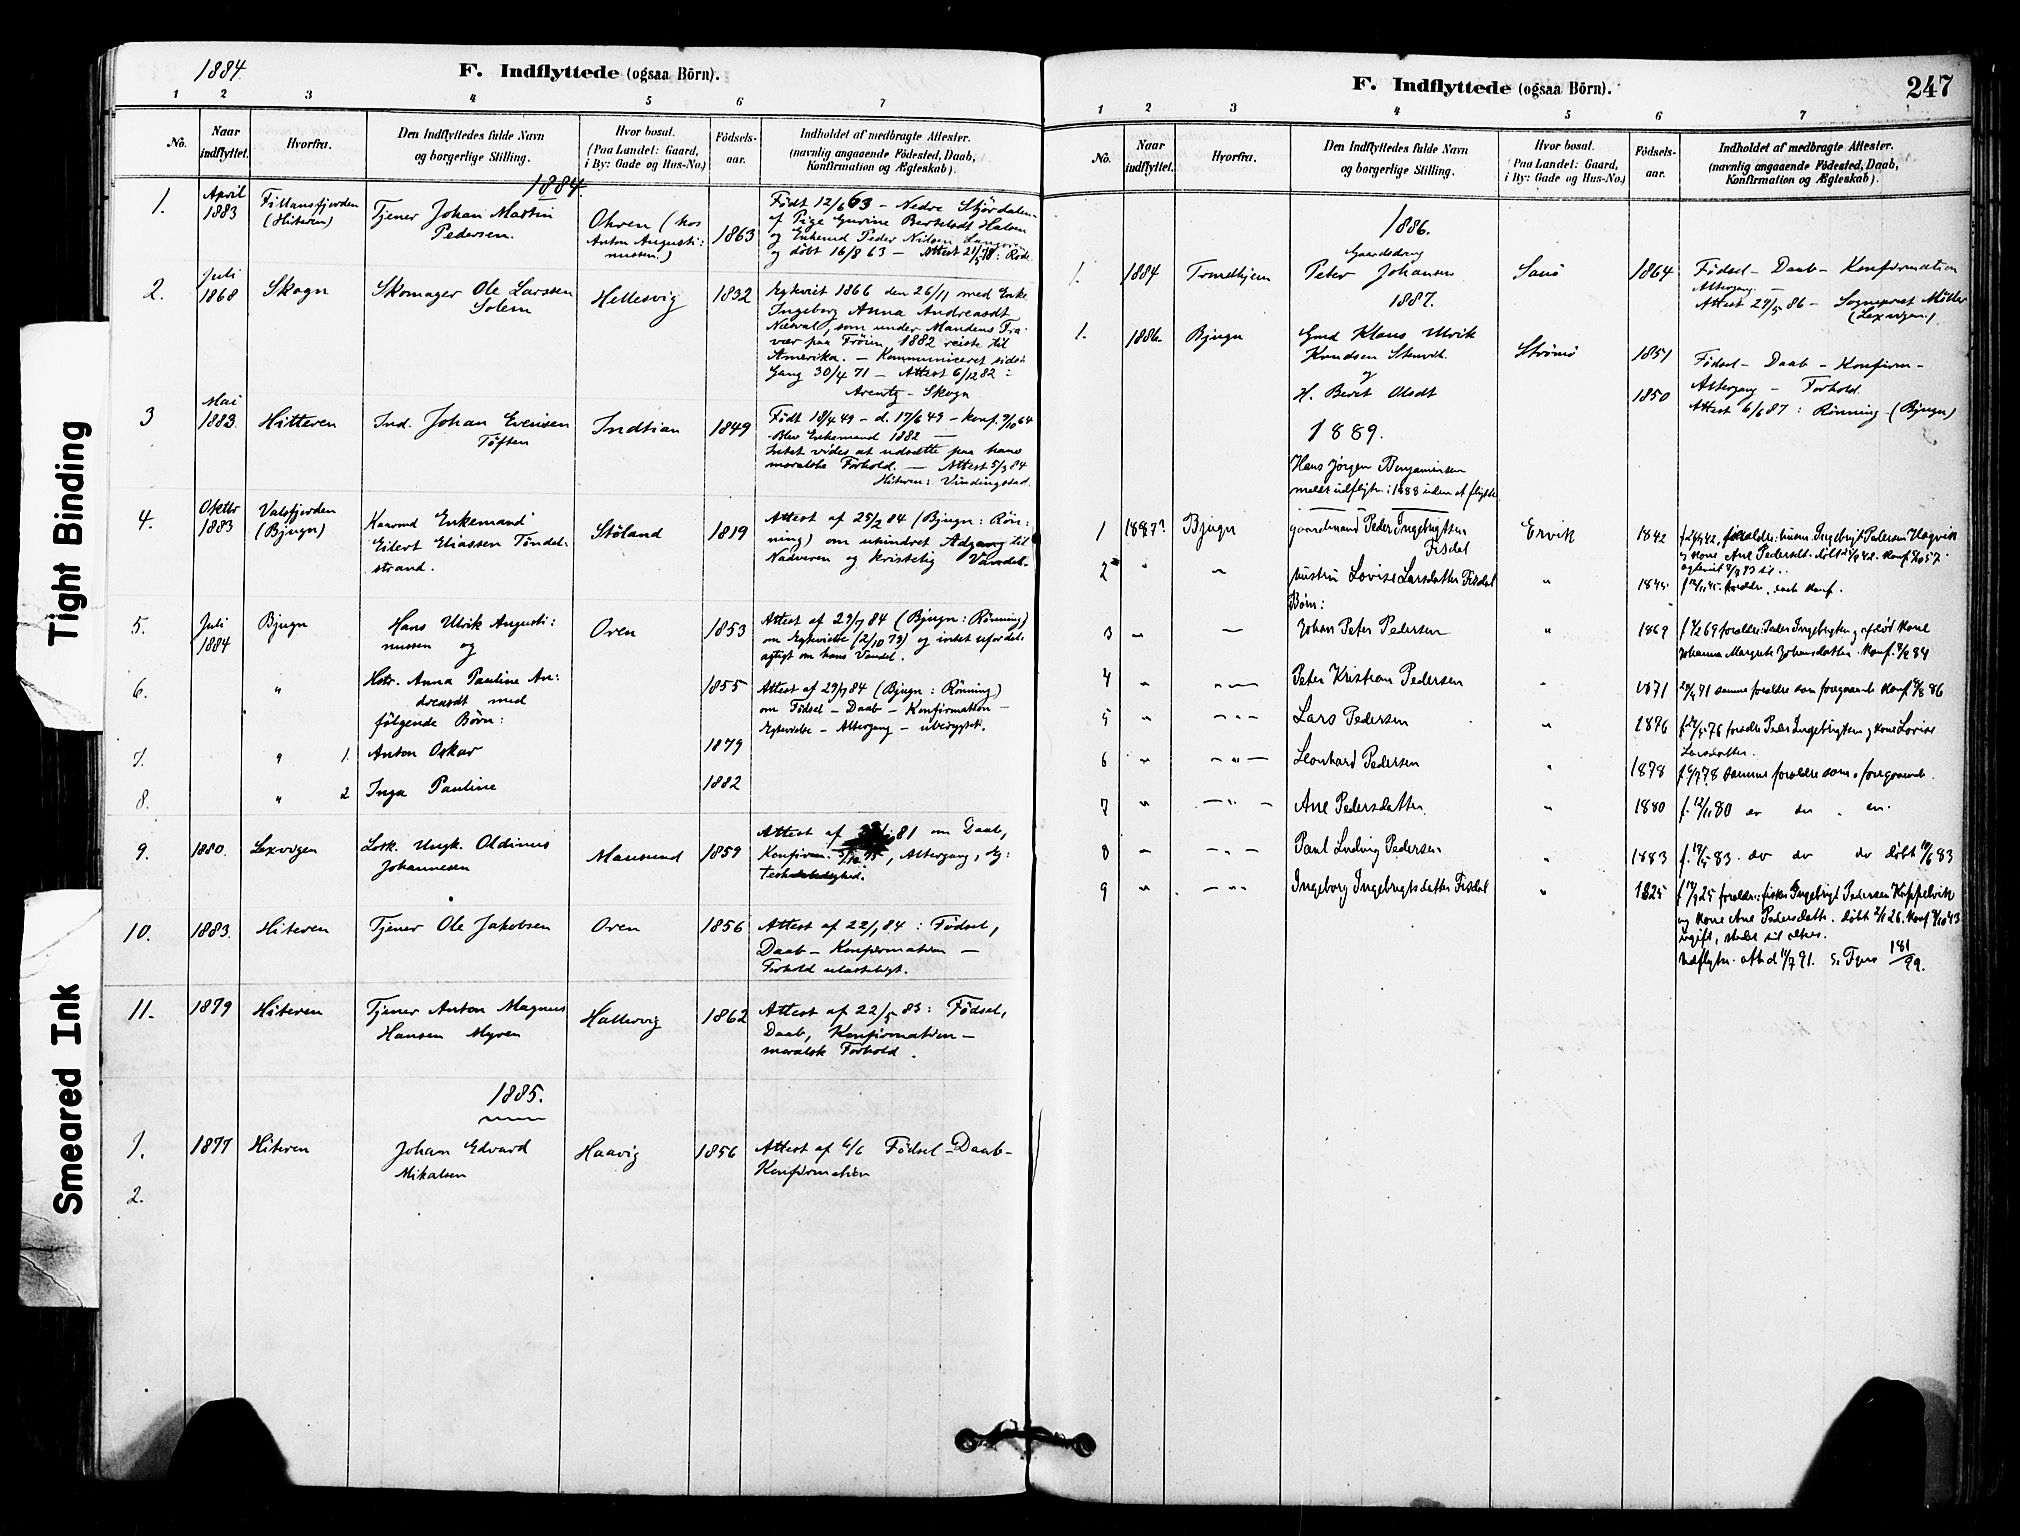 Tight Binding
Smeared Ink
1884.
F. Indflyttede (ogsaa Börn).
1 2 3 4 5 6 7
No.
Naar indflyttet.
Hvorfra.
Den Indflyttedes fulde Navn
og borgerlige Stilling.
Hvor bosat.
(Paa Landet: Gaard,
i By: Gade og Hus-No.)
Födsels-
aar.
Indholdet af medbragte Attester.
(navnlig angaaende Födested, Daab,
Konfirmation og Ægteskab).
1884.
1. April 1883 Fillansfjorden (Hiteren)
Tjener Johan Martin
Pedersen.
Ohren (hos
Anton Augusti:
nussen.)
1863
Födt 12/6 63 - Nedre Stjördalen
af Pige Gurine Bertelsdt Halsen
og Enkemd Peder Nilsen
og döbt 16/8 63 - Attest
2. Juli 1868 Skogn
Skomager Ole Larssen
Solem
Hellesvig
1832
Egteviet 1866 den 26/11 med Enke
Ingeborg Anna Andreasdt
som under Mandens Fra-
vær paa Fröien, 1882 reiste til
Amerika. - Kommuniceret sidste
Gang 30/4 71 - Attest 6/12 82:
Arentz - Skogn
3 Mai 1883. Hitteren
Ind. Johan Evensen
Töften
Indtian
1849
Födt 18/4 49 - d. 17/6 49 - konf. 9/10 64
Blev Enkemand 1882 -
Intet vides at udsætte paa hans
moralske Forhold. - Attest 5/3 84
Hiteren: Vindingstad.
4. Oktbr 1883 Valsfjorden (Bjugn)
Kaarmd Enkemand
Eilert Eliassen Töndel-
strand.
Stöland
1819
Attest af 25/2 84 (Bjugn: Rön-
ning) om uhindret Adgang til
Nadveren og kristelig Vandel.
5. Juli 1884 Bjugn
Hans Ulrik Augusti:
nussen og
Oren
1853
Attest af 29/7 84 (Bjugn: Rönning)
om Egtevielse (2/10 79) og intet ufordel-
agtigt om hans Vandel.
6. "
Hstr. Anna Pauline An-
dreasdt med
fölgende Börn:
1855
Attest af 29/7 84 (Bjugn: Rönning)
om Födsel - Daab - Konfirmation -
Egtevielse - Altergang - uberygtet.
7. " 1. Anton Oskar 1879
8. " 2 Inga Pauline 1882
9. 1880. Lexvigen
Losk. Ungk. Oldinus
Johannesen
Mausund
1859
Attest af 81 om Daab,
Konfirm. Altergang,
10. 1883. Hiteren Tjener Ole Jakobsen Oren 1856
Attest af 22/1 84: Födsel,
Daab - Konfirmation -
Forhold ulasteligt.
11. 1879 Hiteren
Tjener Anton Magnus
Hansen Myren
Hallervig
1862
Attest af 22/5 83: Födsel,
Daab, Konfirmation -
moralsk Forhold.
1885.
1. 1877 Hiteren
Johan Edvard
Mikalsen
Haavig
1856
Attest af 6/6 Födsel - Daab -
Konfirmation
2.
F. Indflyttede (ogsaa Börn).
247
1 2 3 4 5 6 7
No.
Naar indflyttet.
Hvorfra.
Den Indflyttedes fulde Navn
og borgerlige Stilling.
Hvor bosat.
(Paa Landet: Gaard,
i By: Gade og Hus-No.)
Födsels-
aar.
Indholdet af medbragte Attester.
(navnlig angaaende Födested, Daab,
Konfirmation og Ægteskab).
1886.
Gaardsdreng
1. 1884 Trondhjem Peter Johansen 1864
Födsel - Daab - Konfirmation
Altergang. -
Attest 29/5 86 - Sogneprest Möller
(Lexvigen)
1887.
1. 1886. Bjugn
Gmd Klaus Ulrik
Knudsen
og
H. Beret Olsdt
Strömö
1851
1850
Födsel - Daab - Konfirm -
Altergang - Forhold.
Attest 6/6 87: Rönning - (Bjugn)
1889.
Hans Jörgen Benjaminsen
meldt udflyttn: 1888 uden at flytte
1 1887? Bjugn
gaardmand Peder Ingebrigtsen
Fisdal
Ervik
1842
f 24/4 42, forældre: Ingebrigt Pedersen
og kone Ane Pedersdt.
2 " hustru Lovise Larsdatter Fisdal " 1845
Börn:
3 " Johan Peter Pedersen " 1869
forældre: Peder Ingebrigtsen og afdöd kone
Johanna Margrete Johansdatter. konf. 84
4 " Peter Kristian Pedersen 1871
samme foræld­re som foregaaende konf. 86
5 " Lars Pedersen " 1876
forældre Peder Ingebrigtsen og kone Lovise
Larsdatter.
6 " Leonhard Pedersen " 1878
samme forældre som foregaaende.
7 " Ane Pedersdatter. " 1880
f. 12/11 80
8 " Paul Ludvig Pedersen " 1883
do do do döbt 83
9 " Ingeborg Ingebrigtsdatter Fisdal " 1825
forældre: fisker Ingebrigt Pedersen
og kone Ane Pedersdatter. döbt 26. konf 43
ugift,
Udflyttn.